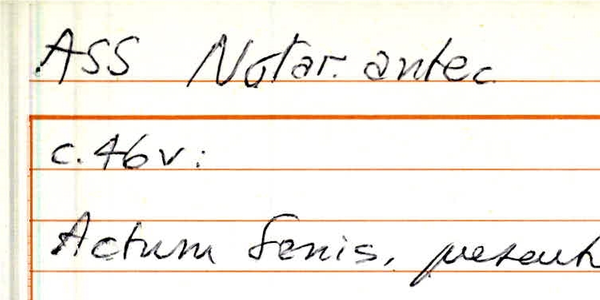 ASS Notar. antec
c. 46v:
Actum Senis, present